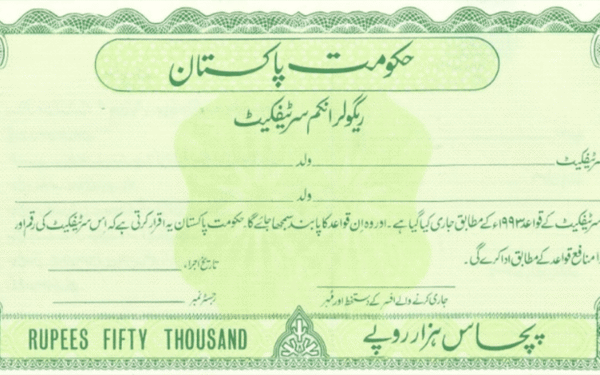 حکومت پاکستان
ریگولر انکم سرٹیفکیٹ
سرٹیفکیٹ ولد
ولد
سرٹیفکیٹ کے قواعد ۱۹۹۳ء کے مطابق جاری کیا گیا ہے ۔ اور وہ ان قواعد کا پابند سمجھا جائے گا۔ حکومت پاکستان یہ اقرار کرتی ہے کہ اس سرٹیفکیٹ کی رقم اور
منافع قواعد کے مطابق ادا کرے گی ۔
تاریخ اجراء
جاری کرنے والے افسر کے دستخط اور نمبر
رجسٹر نمبر
RUPEES FIFTY THOUSAND
پچاس ہزار روپے